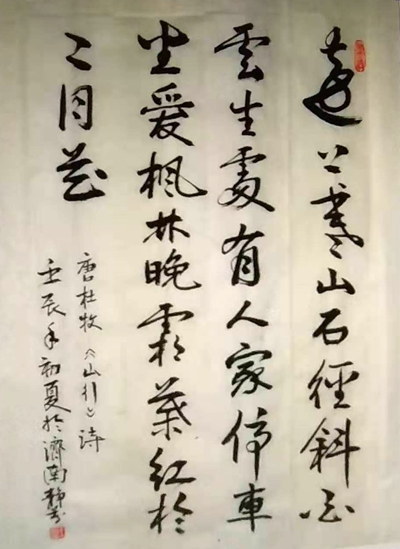 遠上寒山石徑斜白
雲生處有人家停車
坐愛楓林晚霜葉紅於
二月花
唐杜牧《山行》詩
壬辰年初夏於濟南